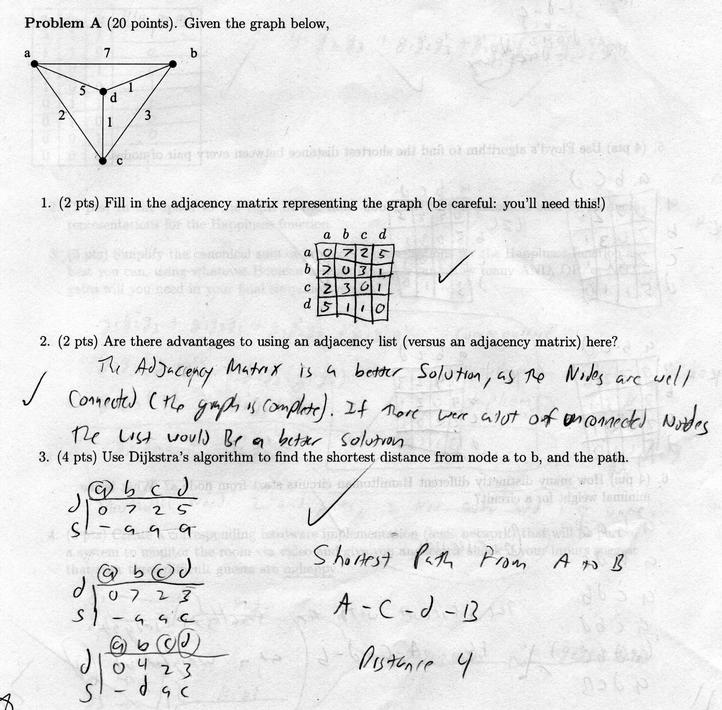 Problem A (20 points). Given the graph below,
a 7 b
5 d 1
2 1 3
c
1. (2 pts) Fill in the adjacency matrix representing the graph (be careful: you'll need this!)
a b c d
a 0 7 2 5
b 7 0 3 1
c 2 3 0 1
d 5 1 1 0
2. (2 pts) Are there advantages to using an adjacency list (versus an adjacency matrix) here?
The Adjacency Matrix is a better Solution, as the Nodes are well
Connected (the graph is complete). If there were alot of unconnected Nodes
The List would Be a better solution
3. (4 pts) Use Dijkstra's algorithm to find the shortest distance from node a to b, and the path.
a b c d
d 0 7 2 5
s - a a a
Shortest Path From A to B
a b c d
d 0 7 2 3
s - a a c
A - C - d - B
a b c d
d 0 4 2 3
s - d a c
Distance 4